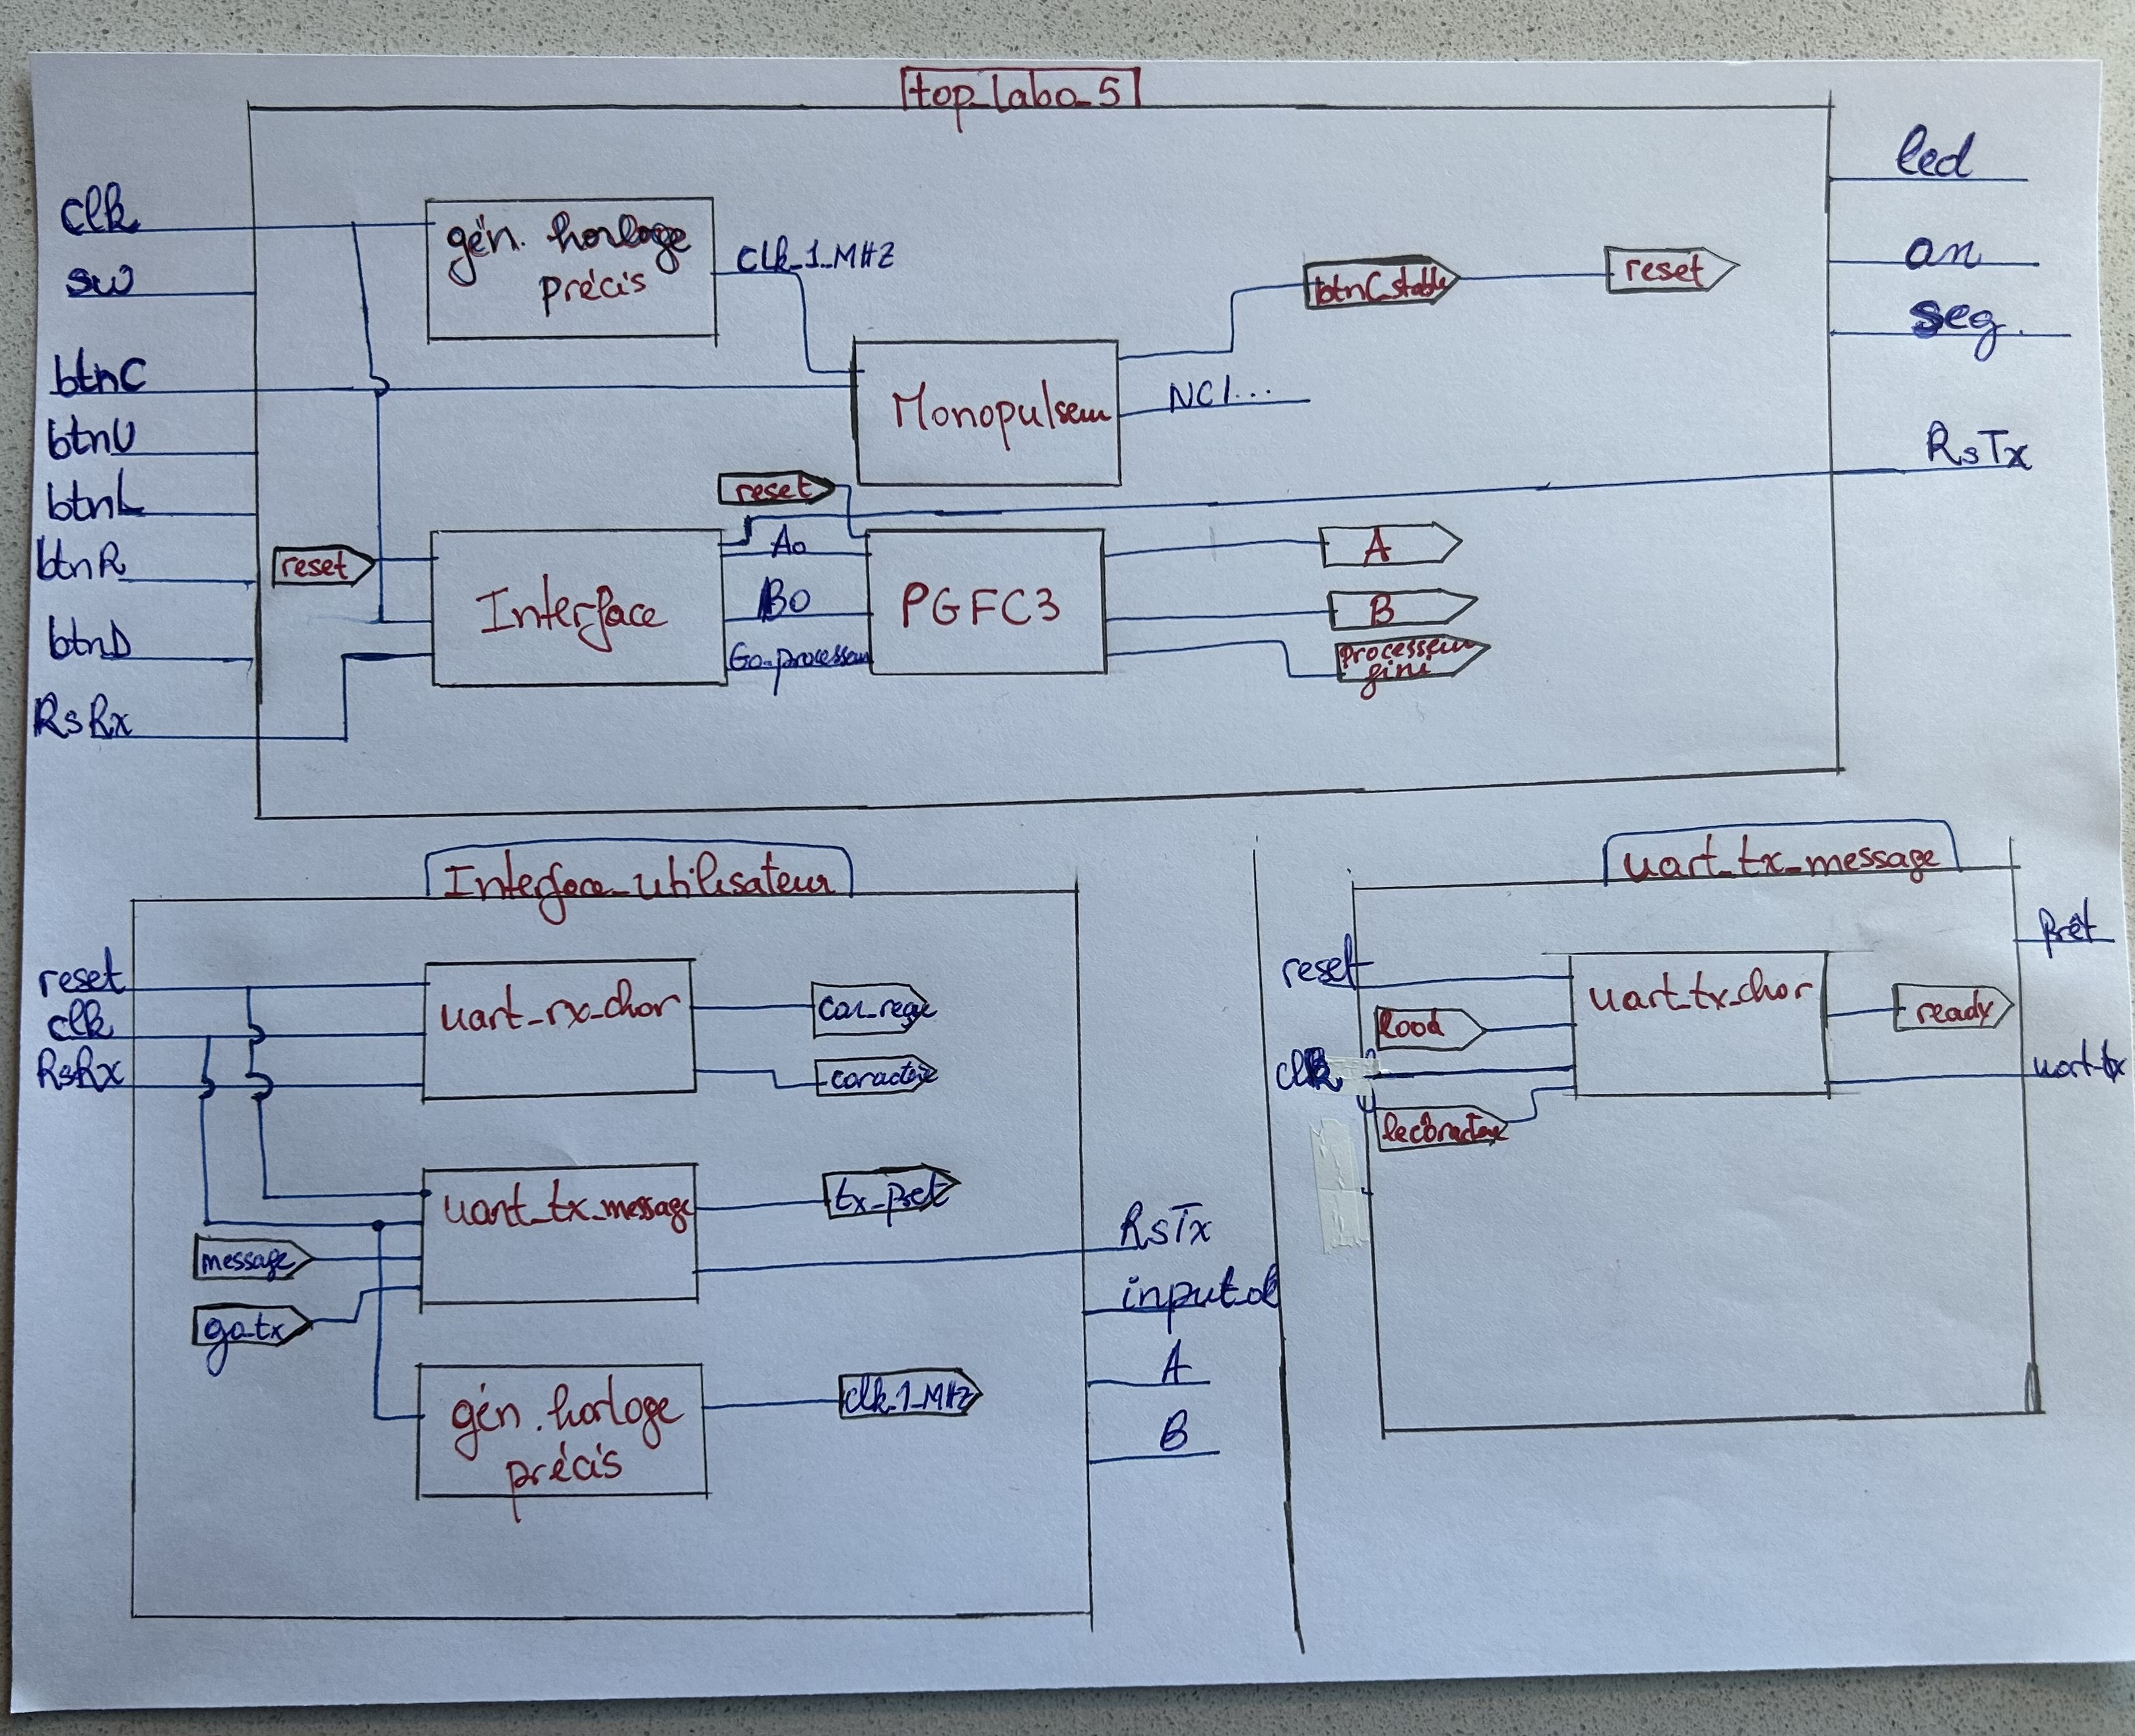 top_labo_5
clk
sw
btnC
btnU
btnL
btnR
btnD
RsRx
gén. horloge
précis
clk_1_MHZ
Monopulseur
btnC_stable
reset
NC1...
reset
reset
Interface
Ao
Bo
Go_processeur
PGFC3
A
B
Processeur
fini
led
an
seg.
RsTx
Interface_utilisateur
reset
clk
RsRx
uart_rx_char
car_reçu
caractère
uart_tx_message
message
go_tx
tx_pret
gén. horloge
précis
clk_1_MHZ
RsTx
input_ok
A
B
uart_tx_message
reset
load
clk
lecaractere
uart_tx_char
ready
Prêt
uart_tx